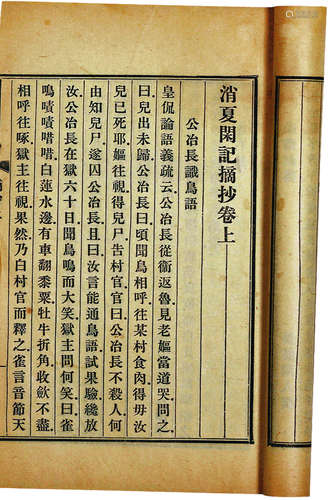 消夏閑記摘抄卷上
公冶長識鳥語
皇侃論語義疏云公冶長從衞返魯見老嫗當道哭問之
曰兒出未歸公冶長曰頃聞鳥相呼往某村食肉得毋汝
兒已死耶嫗往視得兒尸告村官官曰公冶長不殺人何
由知兒尸遂囚公冶長且曰汝言能通鳥語試果驗纔放
汝公冶長在獄六十日聞鳥鳴而大笑獄主問何笑曰雀
鳴嘖嘖喈喈白蓮水邊有車翻黍粟牡牛折角收斂不盡
相呼往啄獄主往視果然乃白村官而釋之雀言音節天